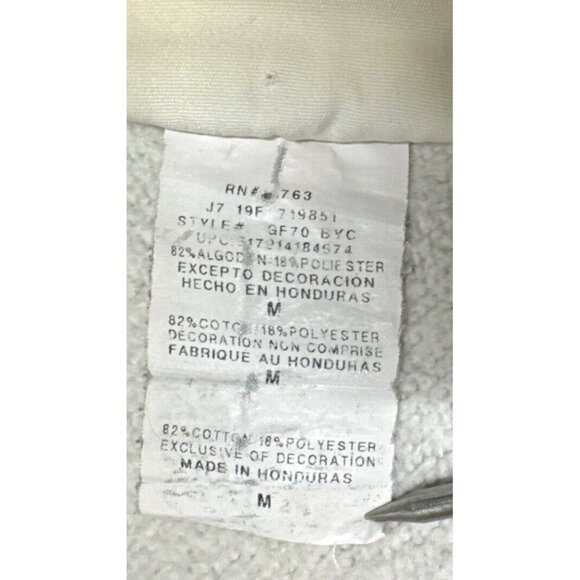 RN# 763
J7 19F 719851
STYLE# GF70 BYC
82%ALGODEN/18%POLIESTER
EXCEPTO DECORACIÓN
HECHO EN HONDURAS
M
82%COTON/18%POLYESTER
DECORATION NON COMPRISE
FABRIQUE AU HONDURAS
M
82%COTTON/18%POLYESTER
EXCLUSIVE OF DECORATION
MADE IN HONDURAS
M